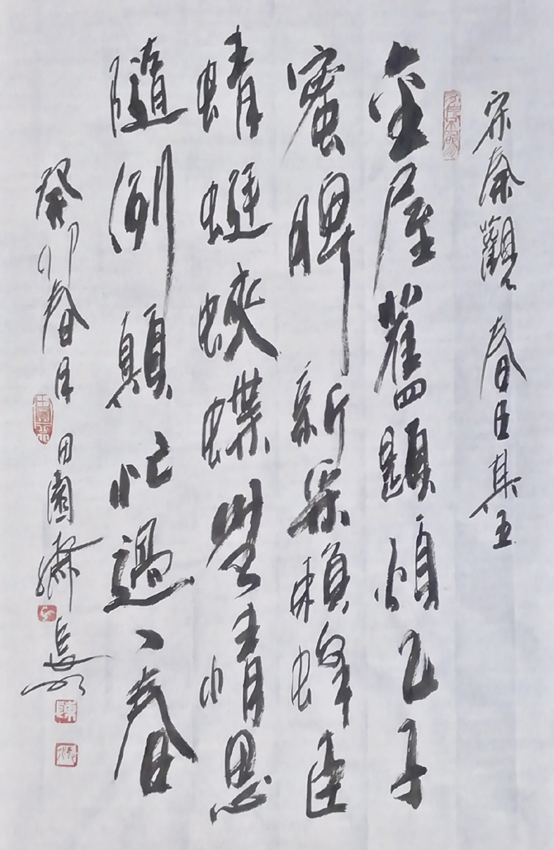 宋秦觀春日其五
金屋舊題煩乙子
蜜脾新采賴蜂臣
蜻蜓蛺蝶無情思
隨例顛忙過一春
癸卯春月田園齋